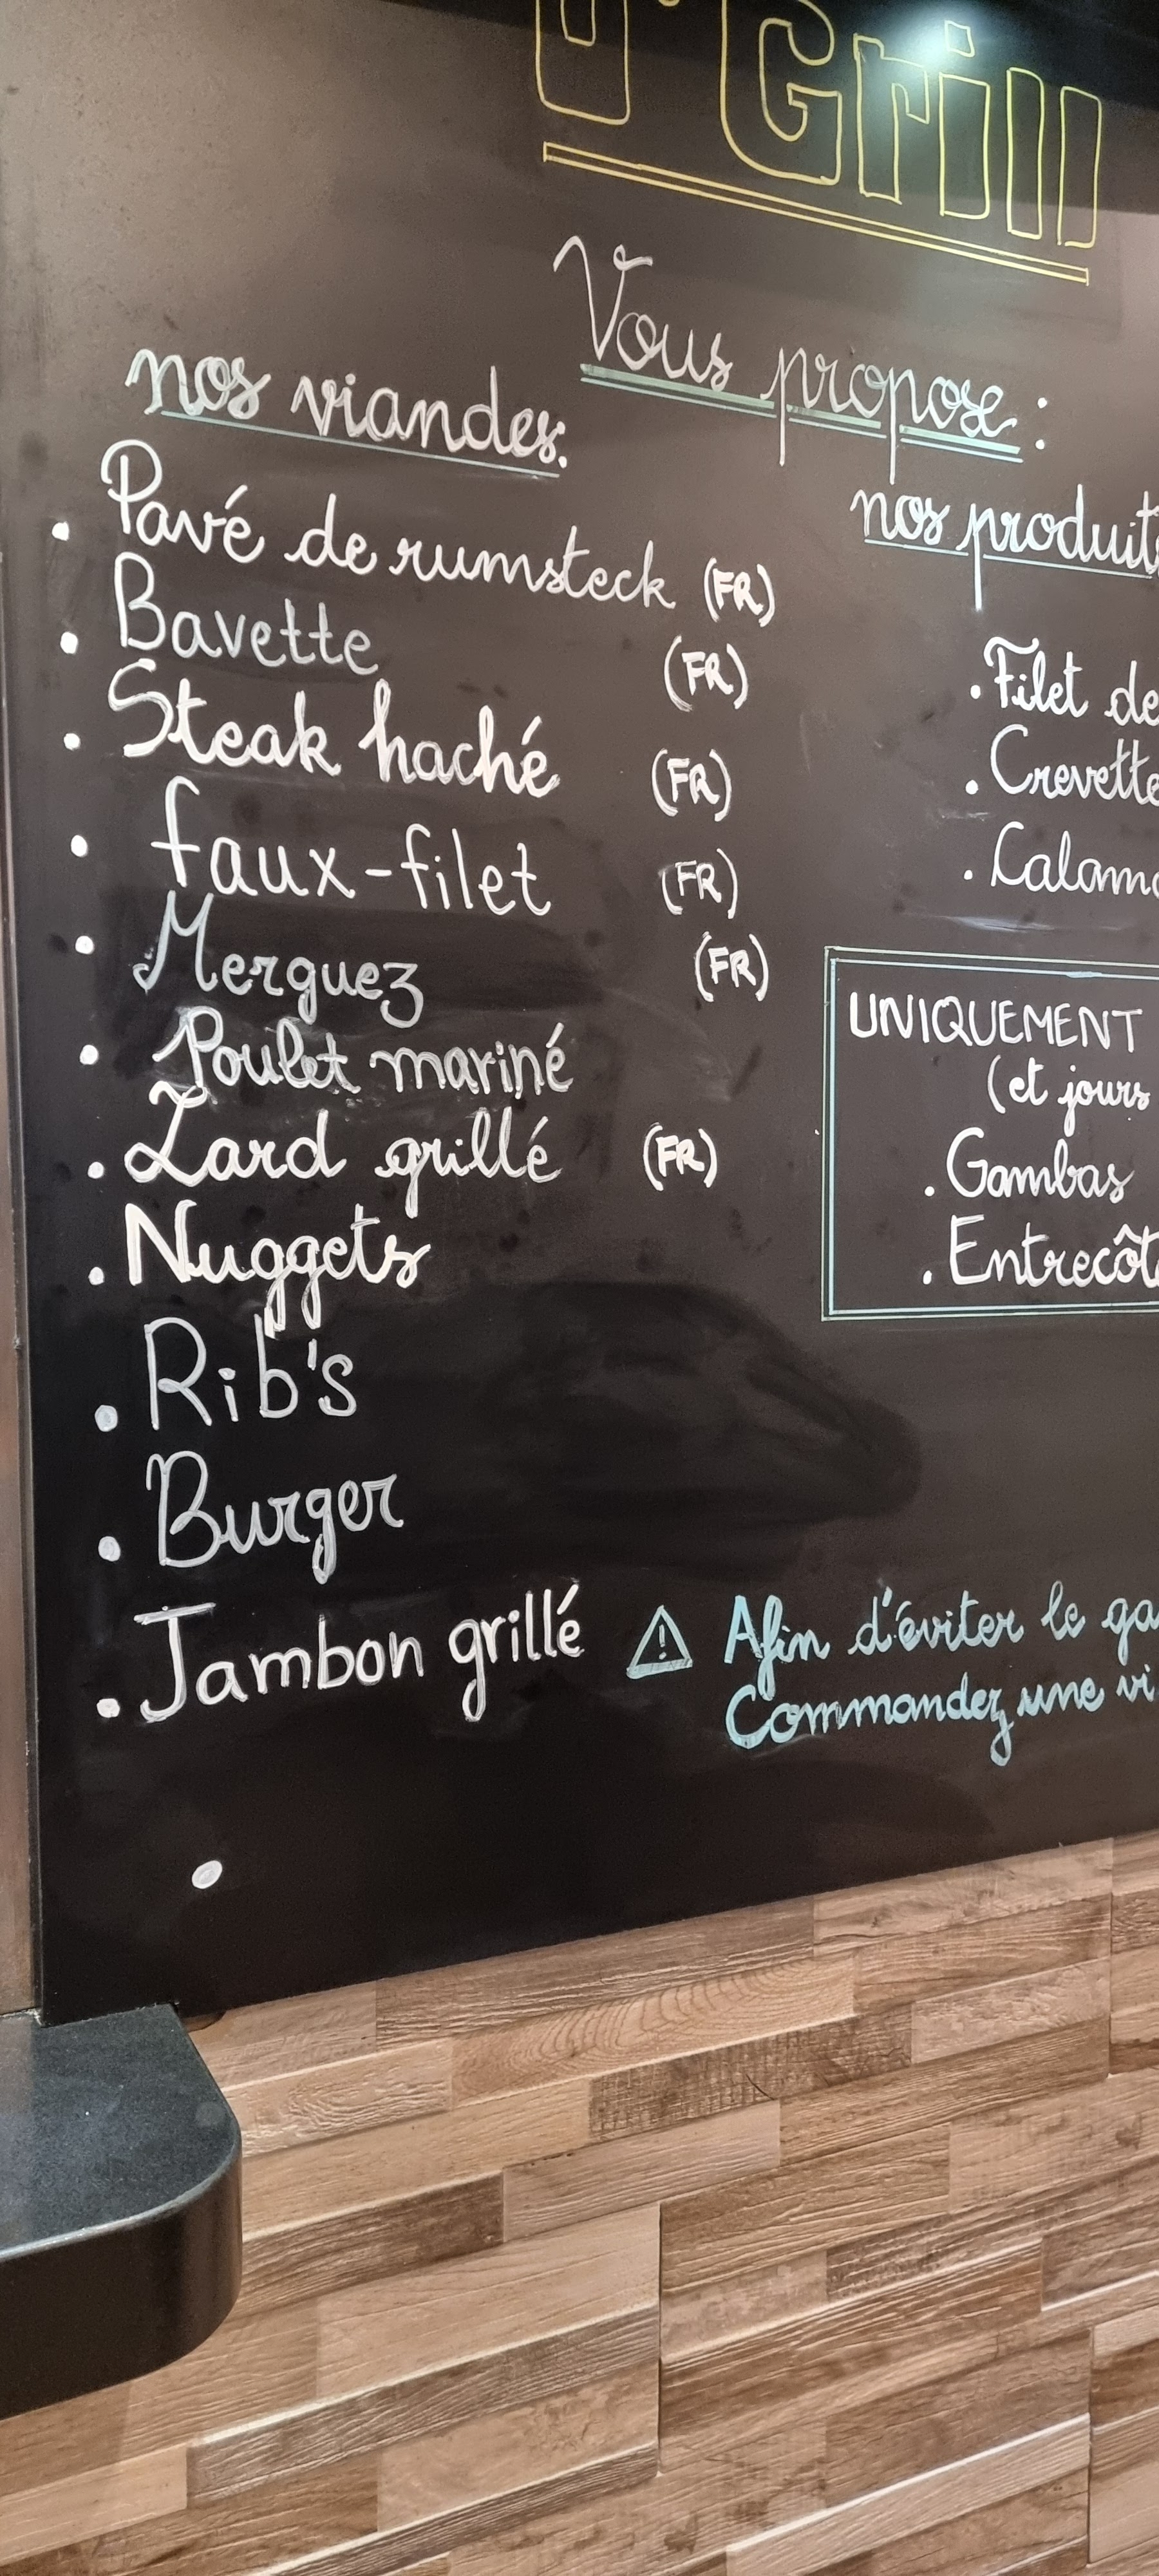 O'Grill
Vous propose :
nos viandes:
. Pavé de rumsteck (FR)
. Bavette (FR)
. Steak haché (FR)
. faux-filet (FR)
. Merguez (FR)
. Poulet mariné
. Lard grillé (FR)
. Nuggets
. Rib's
. Burger
. Jambon grillé
.
nos produit
. Filet de
. Crevette
. Calam
UNIQUEMENT
(et jours
. Gambas
. Entrecôt
⚠ Afin d'éviter le ga
Commandez une vi